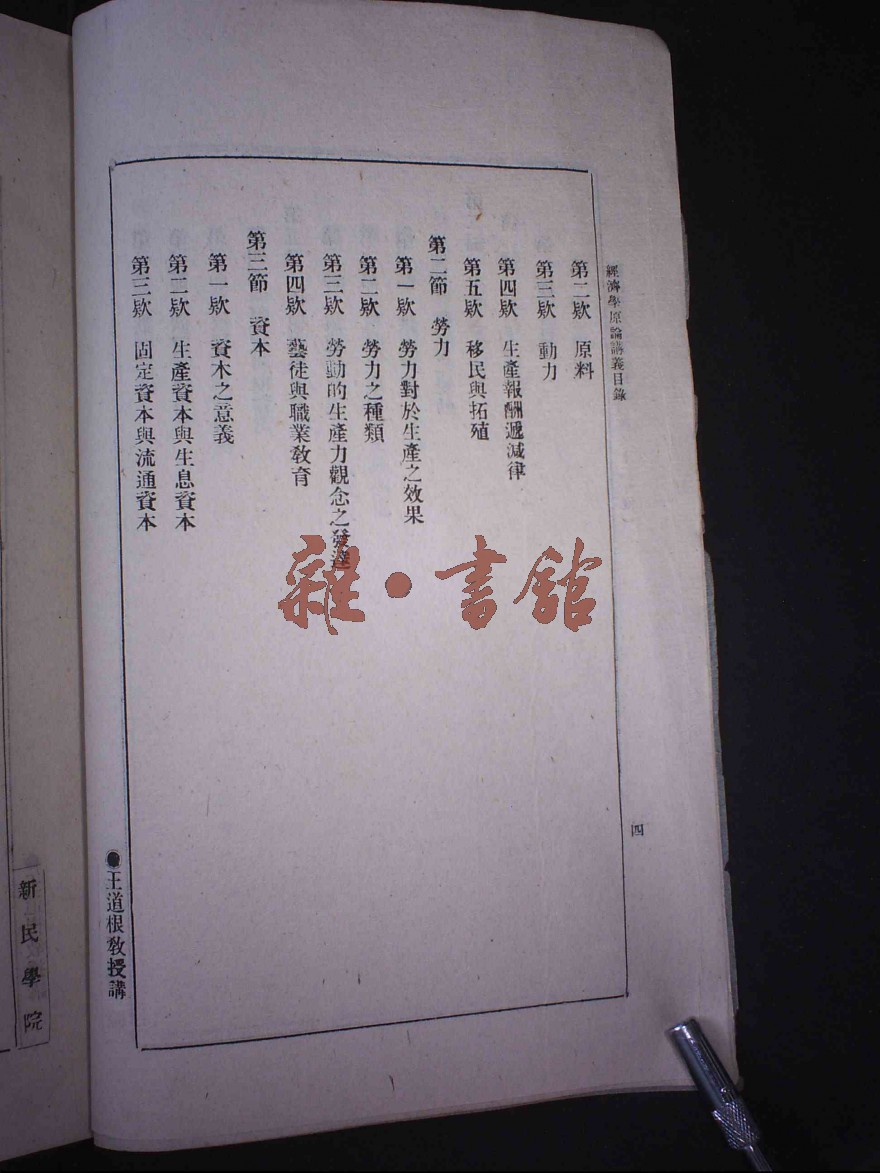 經濟學原論講義目錄
四
第二欵　原料
第三欵　動力
第四欵　生產報酬遞減律
第五欵　移民與拓殖
第二節　勞力
第一欵　勞力對於生產之效果
第二欵　勞力之種類
第三欵　勞動的生產力觀念之發達
第四欵　藝徒與職業敎育
第三節　資本
第一欵　資本之意義
第二欵　生產資本與生息資本
第三欵　固定資本與流通資本
●王道根敎授講
新民學院
雜·書館